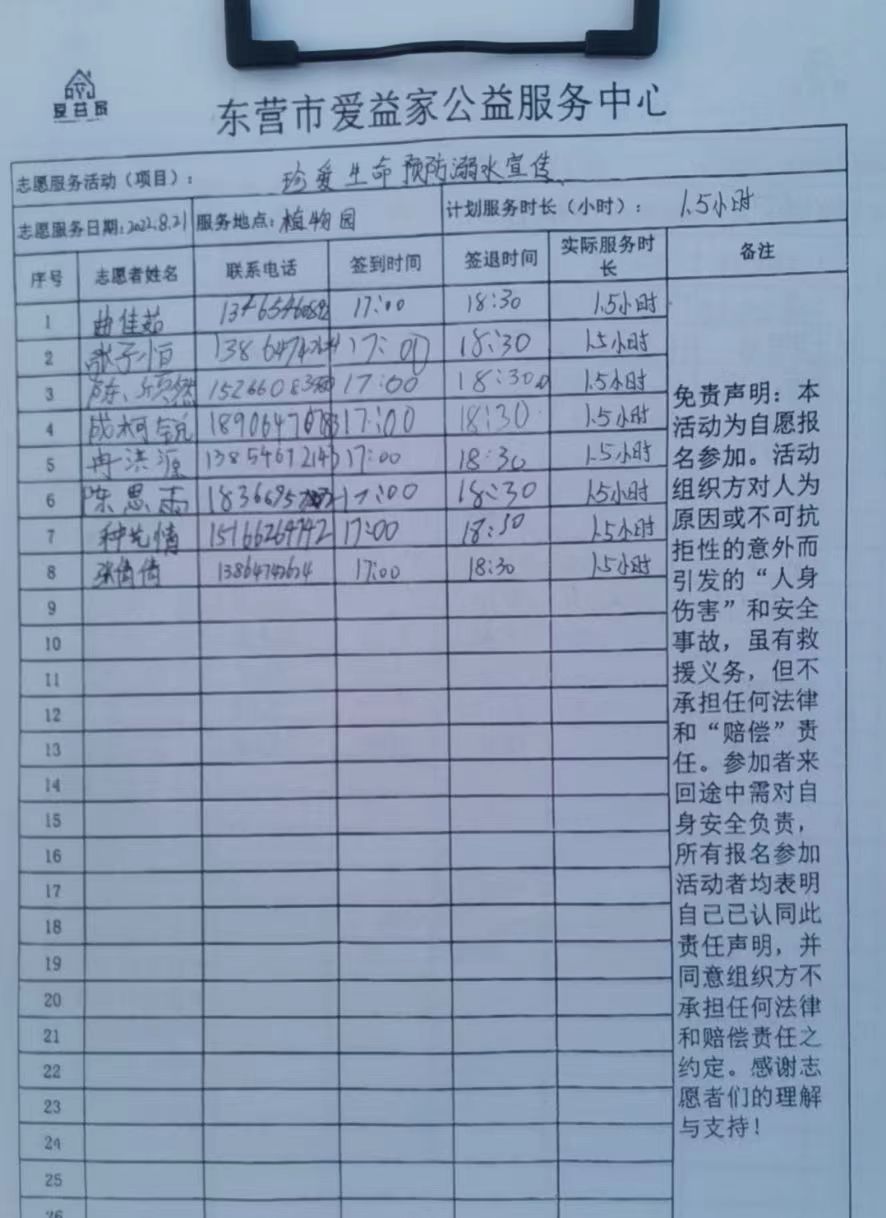 爱益家
东营市爱益家公益服务中心
志愿服务活动（项目）： 珍爱生命 预防溺水宣传
志愿服务日期：2022.8.21 服务地点：植物园 计划服务时长（小时）： 1.5小时
序号 志愿者姓名 联系电话 签到时间 签退时间 实际服务时长 备注
1 曲佳茹 17:00 18:30 1.5小时
2 张子恒 17:00 18:30 1.5小时
3 17:00 18:30 1.5小时
4 成柯锐 17:00 18:30 1.5小时
5 冉洪源 17:00 18:30 1.5小时
6 陈思雨 17:00 18:30 1.5小时
7 17:00 18:30 1.5小时
8 张倩倩 17:00 18:30 1.5小时
9
10
11
12
13
14
15
16
17
18
19
20
21
22
23
24
25
26
免责声明：本
活动为自愿报
名参加。活动
组织方对人为
原因或不可抗
拒性的意外而
引发的“人身
伤害”和安全
事故，虽有救
援义务，但不
承担任何法律
和“赔偿”责
任。参加者来
回途中需对自
身安全负责，
所有报名参加
活动者均表明
自己已认同此
责任声明，并
同意组织方不
承担任何法律
和赔偿责任之
约定。感谢志
愿者们的理解
与支持！